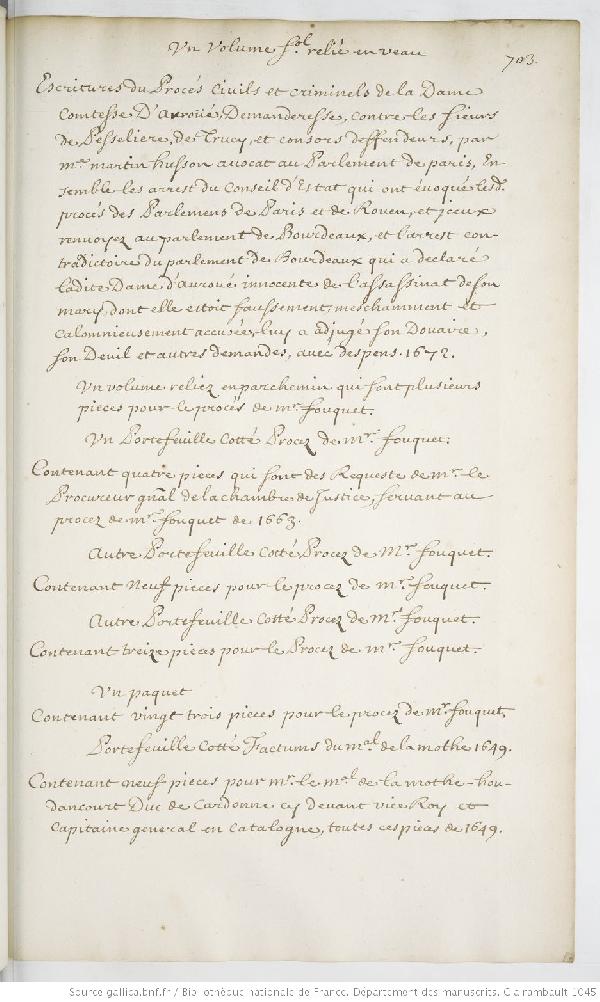 Vn Volume fol. relié en veau
703.
Escritures du Procés Civils et criminels de la Dame
Comtesse D'auroüé, Demanderesse, contre les sieurs
de Pesseliere, de Trucy, et consors deffendeurs, par
me. martin husson avocat au Parlement de paris, En-
semble les arrest du Conseil d'Estat qui ont évoqué lesd.
procés des Parlemens de Paris et de Rouen, et jceux
renvoyez au parlement de Bourdeaux, et l'arrest con-
tradictoire du parlement de Bourdeaux qui a declaré
ladite Dame d'auroué innocente de l'assassinat de son
mary, dont elle estoit faussement, meschamment et
Calomnieusement accusée, luy a adjugé son Douaire,
son Deuil et autres demandes, avec despens. 1672.
Vn volume reliez en parchemin qui sont plusieurs
pieces pour le procés de mr. fouquet.
Vn Portefeuille Cotté Procez de mr. fouquet.
Contenant quatre pieces qui sont des Requeste de mr. le
Procureur gnal de la chambre de Justice, servant au
procez de mr. fouquet de 1663.
Autre Portefeuille Cotté Procez de Mr. fouquet.
Contenant Neuf pieces pour le procez de mr. fouquet.
Autre Portefeuille Cotté Procez de Mr. fouquet.
Contenant treize pieces pour le Procez de mr. fouquet.
Vn paquet
Contenant vingt trois pieces pour le procez de mr. fouquet.
Portefeuille Cotté Factums du mal. de la mothe 1649.
Contenant neuf pieces pour mr. le mal. de la mothe-hou-
dancourt Duc de Cardonne cy devant vice Roy et
Capitaine general en Catalogne, toutes ces pieces de 1649.
Source gallica.bnf.fr / Bibliothèque nationale de France. Département des manuscrits. Clairambault 1045